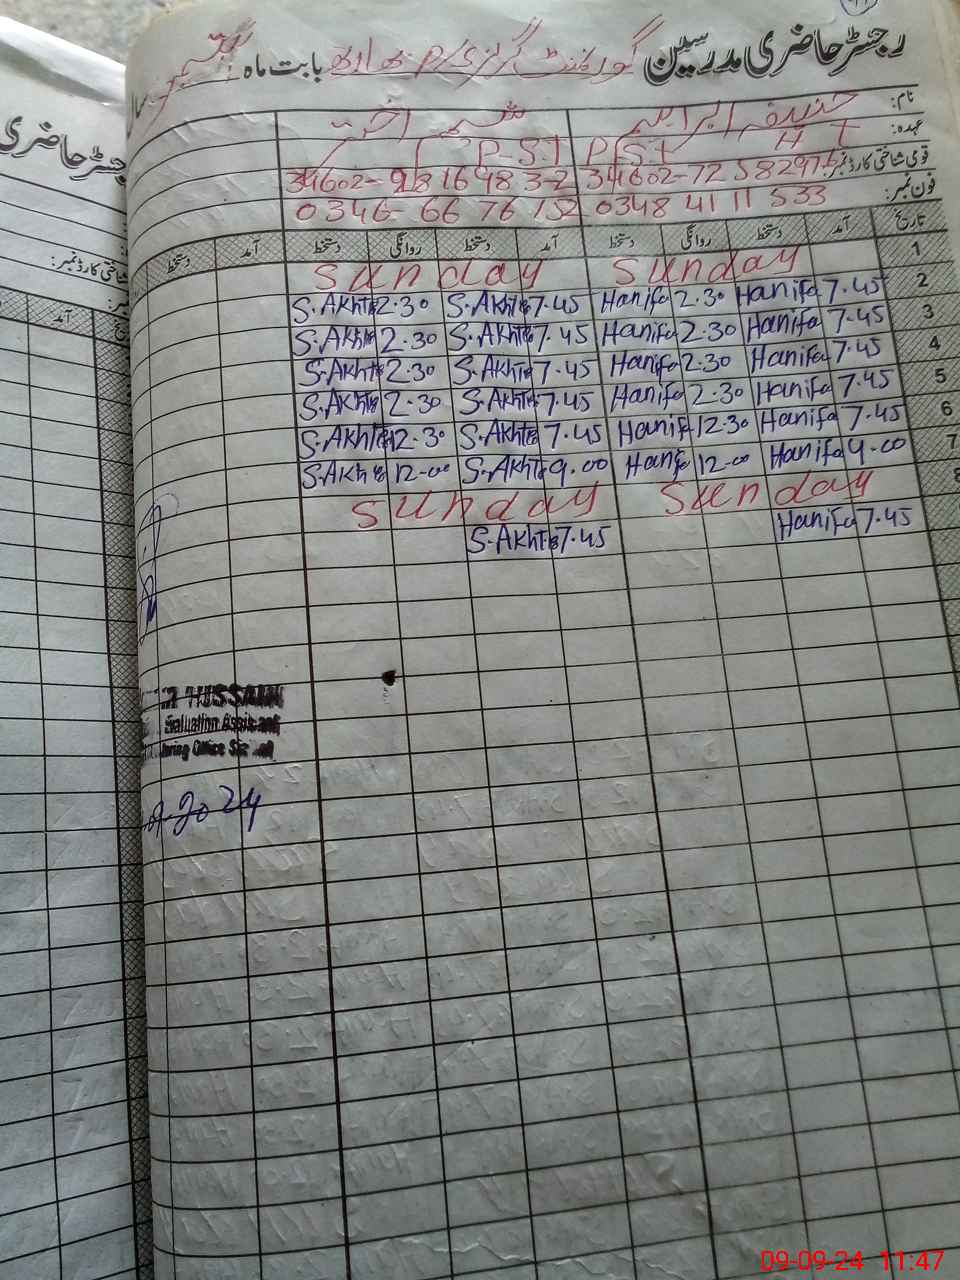 رجسٹر حاضری مدرسین گورنمنٹ گرلز P/S بابت ماہ ستمبر
نام: حنیفہ ابراہیم شمیم اختر
عہدہ: P.S.T H T P-S.T
قومی شناختی کارڈ نمبر: 34602-72 58297-6 34602-9816483-2
فون نمبر: 0348 41 11 533 0346-66 76 152
تاریخ آمد دستخط روانگی دستخط آمد دستخط روانگی دستخط آمد دستخط
1 Sunday Sunday
2 7.45 Hanifa 2.30 Hanifa 7.45 S.Akhter 2.30 S.Akhter
3 7.45 Hanifa 2.30 Hanifa 7.45 S.Akhter 2.30 S.Akhter
4 7.45 Hanifa 2.30 Hanifa 7.45 S.Akhter 2.30 S.Akhter
5 7.45 Hanifa 2.30 Hanifa 7.45 S.Akhter 2.30 S.Akhter
6 7.45 Hanifa 12.30 Hanifa 7.45 S.Akhter 12.30 S.Akhter
7 9.00 Hanifa 12-00 Hanifa 9.00 S.Akhter 12-00 S.Akhter
8 Sunday Sunday
7.45 Hanifa 7.45 S.Akhter
HUSSAIN
Evaluation Assistant
Office
2024
رجسٹر حاضری
شناختی کارڈ نمبر:
آمد
09-09-24 11:47